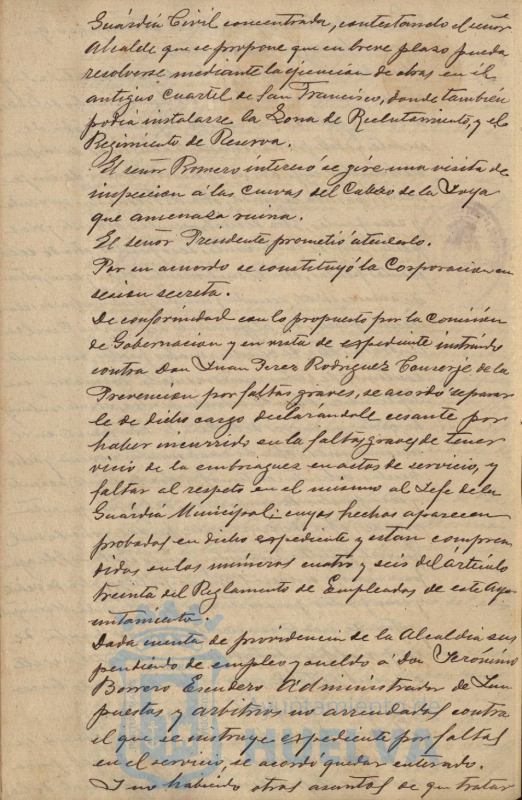 Guardia Civil concentrada, contestando el señor
Alcalde que se propone que en breve plazo pueda
resolverse mediante la ejecución de obras en él
antiguo cuartel de San Francisco, donde también
podía instalarse la Zona de Reclutamiento, y el
Regimiento de Reserva.
El señor Romero interesó se gire una visita de
inspección á las cuevas del Cabezo de la Joya
que amenaza ruina.
El señor Presidente prometió atenderlo.
Por su acuerdo se constituyó la Corporación en
sesion secreta.
De conformidad con lo propuesto por la Comisión
de Gobernacion y en vista de expediente instruido
contra Don Juan Perez Rodriguez Conserje de la
Prevencion por faltas graves, se acordó separar
le de dicho cargo declarándole cesante por
haber incurrido en la faltas graves de tener
vicio de la embriaguez en actos de servicio, y
faltar al respeto en el mismo al Jefe de la
Guardia Municipal: cuyos hechos aparecen
probados en dicho expediente y estan compren
didos en los números cuatro y seis del Artículo
treinta del Reglamento de Empleados de este Ayu
ntamiento.
Dada cuenta de providencia de la Alcaldia sus
pendiendo de empleo y sueldo á Don Jerónimo
Borrero Escudero Administrador de Im
puestos y arbitrios no arrendados contra
el que se instruye expediente por faltas
en el servicio, se acordó quedar enterado.
Y no habiendo otros asuntos de que tratar
HUELVA